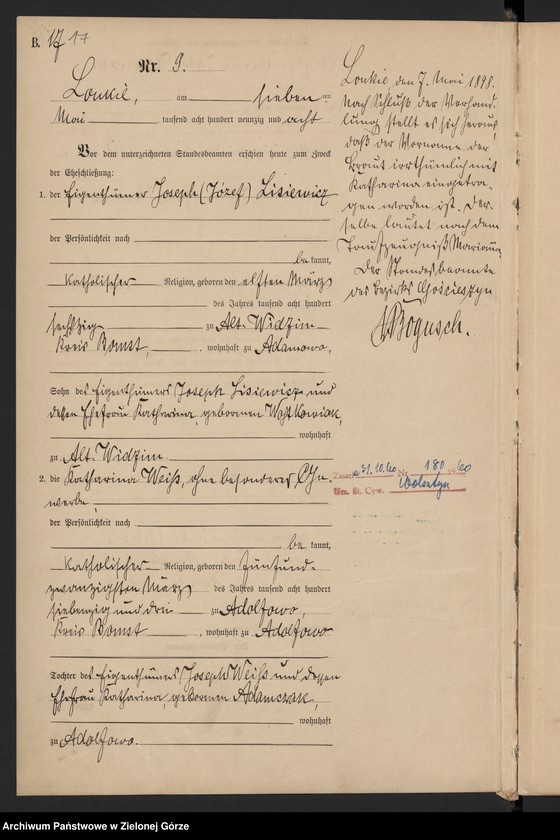 B. 17 17
Nr. 9.
Lonkie, am sieben ten
Mai tausend acht hundert neunzig und acht
Vor dem unterzeichneten Standesbeamten erschien heute zum Zweck
der Eheschließung:
1. der Eigenthümer Joseph (Józef) Lisiewicz
der Persönlichkeit nach
be kannt,
katholischer Religion, geboren den elften März
des Jahres tausend acht hundert
sechszig zu Alt-Widzim
Kreis Bomst, wohnhaft zu Adamowo,
Sohn des Eigenthümers Joseph Lisiewicz und
dessen Ehefrau Katharina, geborenen
wohnhaft
zu Alt-Widzim.
2. die Katharina Weiß, ohne besonderes Ge-
werbe,
der Persönlichkeit nach
be kannt,
katholischer Religion, geboren den fünfund-
zwanzigsten März des Jahres tausend acht hundert
siebenzig und drei zu Adolfowo,
Kreis Bomst, wohnhaft zu Adolfowo
Tochter des Eigenthümers Joseph Weiß und dessen
Ehefrau Katharina, geborenen Adamczak,
wohnhaft
zu Adolfowo.
Lonkie den 7. Mai 1898.
Nach Schluß der Verhand-
lung stellt es sich heraus,
daß der Vorname der
Braut irrthümlich mit
Katharina eingetra-
gen worden ist. Der-
selbe lautet nach dem
Taufzeugniß Marianna.
Der Standesbeamte
des Bezirks Gościeszyn
Bogusch.
31.10.60 Nr 180 1960
Urz. St. Cyw. Wolsztyn
Archiwum Państwowe w Zielonej Górze